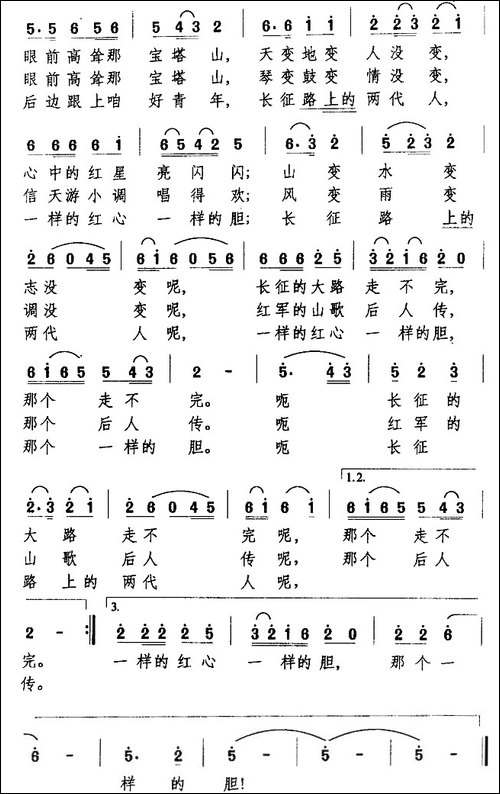 5·5 6 5 6 | 5 4 3 2 | 6·6 i i | 2 2 3 2 i |
眼前高耸那 宝塔山, 天变地变 人没变,
眼前高耸那 宝塔山, 琴变鼓变 情没变,
后边跟上咱 好青年, 长征路上的两代人,
6 6 6 6 i | 6 5 4 2 5 | 6·3 2 | 5 2 3 2 |
心中的红星 亮闪闪; 山变 水变
信天游小调 唱得欢; 风变 雨变
一样的红心 一样的胆; 长征 路上的
2 6 0 4 5 | 6 i 6 0 5 6 | 6 6 6 2 5 | 3 2 i 6 2 0 |
志没 变呢, 长征的大路 走不完,
调没 变呢, 红军的山歌 后人传,
两代 人呢, 一样的红心 一样的胆,
6 i 6 5 5 4 3 | 2 - | 5· 4 3 | 5 2 3 |
那个 走不 完。 呃 长征的
那个 后人 传。 呃 红军的
那个 一样的 胆。 呃 长征
1.2.
2·3 2 i | 2 6 0 4 5 | 6 i 6 i | 6 i 6 5 5 4 3 |
大路 走不 完呢, 那个 走不
山歌 后人 传呢, 那个 后人
路上的 两代 人呢,
3.
2 - :‖ 2 2 2 2 5 | 3 2 i 6 2 0 | 2 2 6 |
完。 一样的红心 一样的胆, 那个一
传。
6 - | 5· 2 | 5 - | 5 - | 5 - ‖
样的 胆!